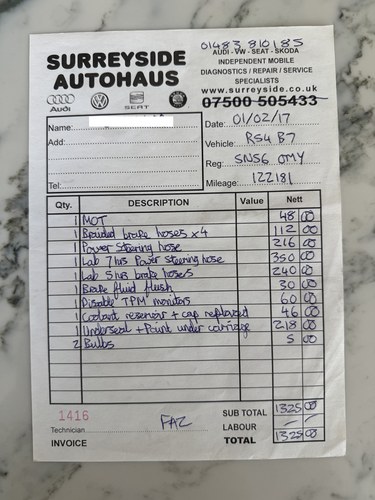 SURREYSIDE
AUTOHAUS
Audi
SEAT
01483 810185
AUDI - VW - SEAT - SKODA
INDEPENDENT MOBILE
DIAGNOSTICS / REPAIR / SERVICE
SPECIALISTS
www.surreyside.co.uk
07500 505433
Name:
Add:
Tel:
Date: 01/02/17
Vehicle: RS4 B7
Reg: SNS6 OMY
Mileage: 122181
Qty. DESCRIPTION Value Nett
1 MOT 48 00
1 Braided brake hoses x4 112 00
1 Power steering hose 216 00
1 Lab 7hrs Power steering hose 350 00
1 Lab 5hrs brake hoses 240 00
1 Brake fluid flush 30 00
1 Disable TPM monitors 60 00
1 Coolant reservoir + cap replaced 46 00
1 Underseal + Paint under carriage 218 00
2 Bulbs 5 00
1416
Technician FAZ
INVOICE
SUB TOTAL 1325 00
LABOUR — —
TOTAL 1325 00